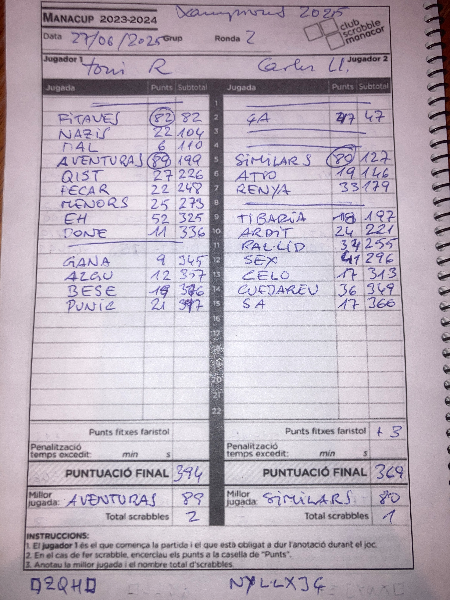 MANACUP 2023-2024
club scrabble manacor
Data 27/06/2025 Grup Ronda 2
Jugador 1 Toni R Carles Ll. Jugador 2
Jugada Punts Subtotal Jugada Punts Subtotal
1
FITAVES 82 82 2 ÇA 47 47
NAZIS 22 104 3
MAL 6 110 4
AVENTURAS 89 199 5 SIMILARS 80 127
QIST 27 226 6 ATIO 19 146
PECAR 22 248 7 RENYA 33 179
MENORS 25 273 8
EH 52 325 9 TIBARIA 18 197
DONE 11 336 10 ARDIT 24 221
11 PAL·LID 34 255
GANA 9 345 12 SEX 41 296
AZGU 12 357 13 CELO 17 313
BESE 19 376 14 36 349
PUNIC 21 397 15 SA 17 366
16
17
18
19
20
21
22
Punts fitxes faristol Punts fitxes faristol + 3
Penalització temps excedit: min s Penalització temps excedit: min s
PUNTUACIÓ FINAL 394 PUNTUACIÓ FINAL 369
Millor jugada: AVENTURAS 89 Millor jugada: SIMILARS 80
Total scrabbles 2 Total scrabbles 1
INSTRUCCIONS:
1. El jugador 1 és el que comença la partida i el que està obligat a dur l'anotació durant el joc.
2. En el cas de fer scrabble, encerclau els punts a la casella de "Punts".
3. Anotau la millor jugada i el nombre total d'scrabbles.
DZQHD NYL·LXJG